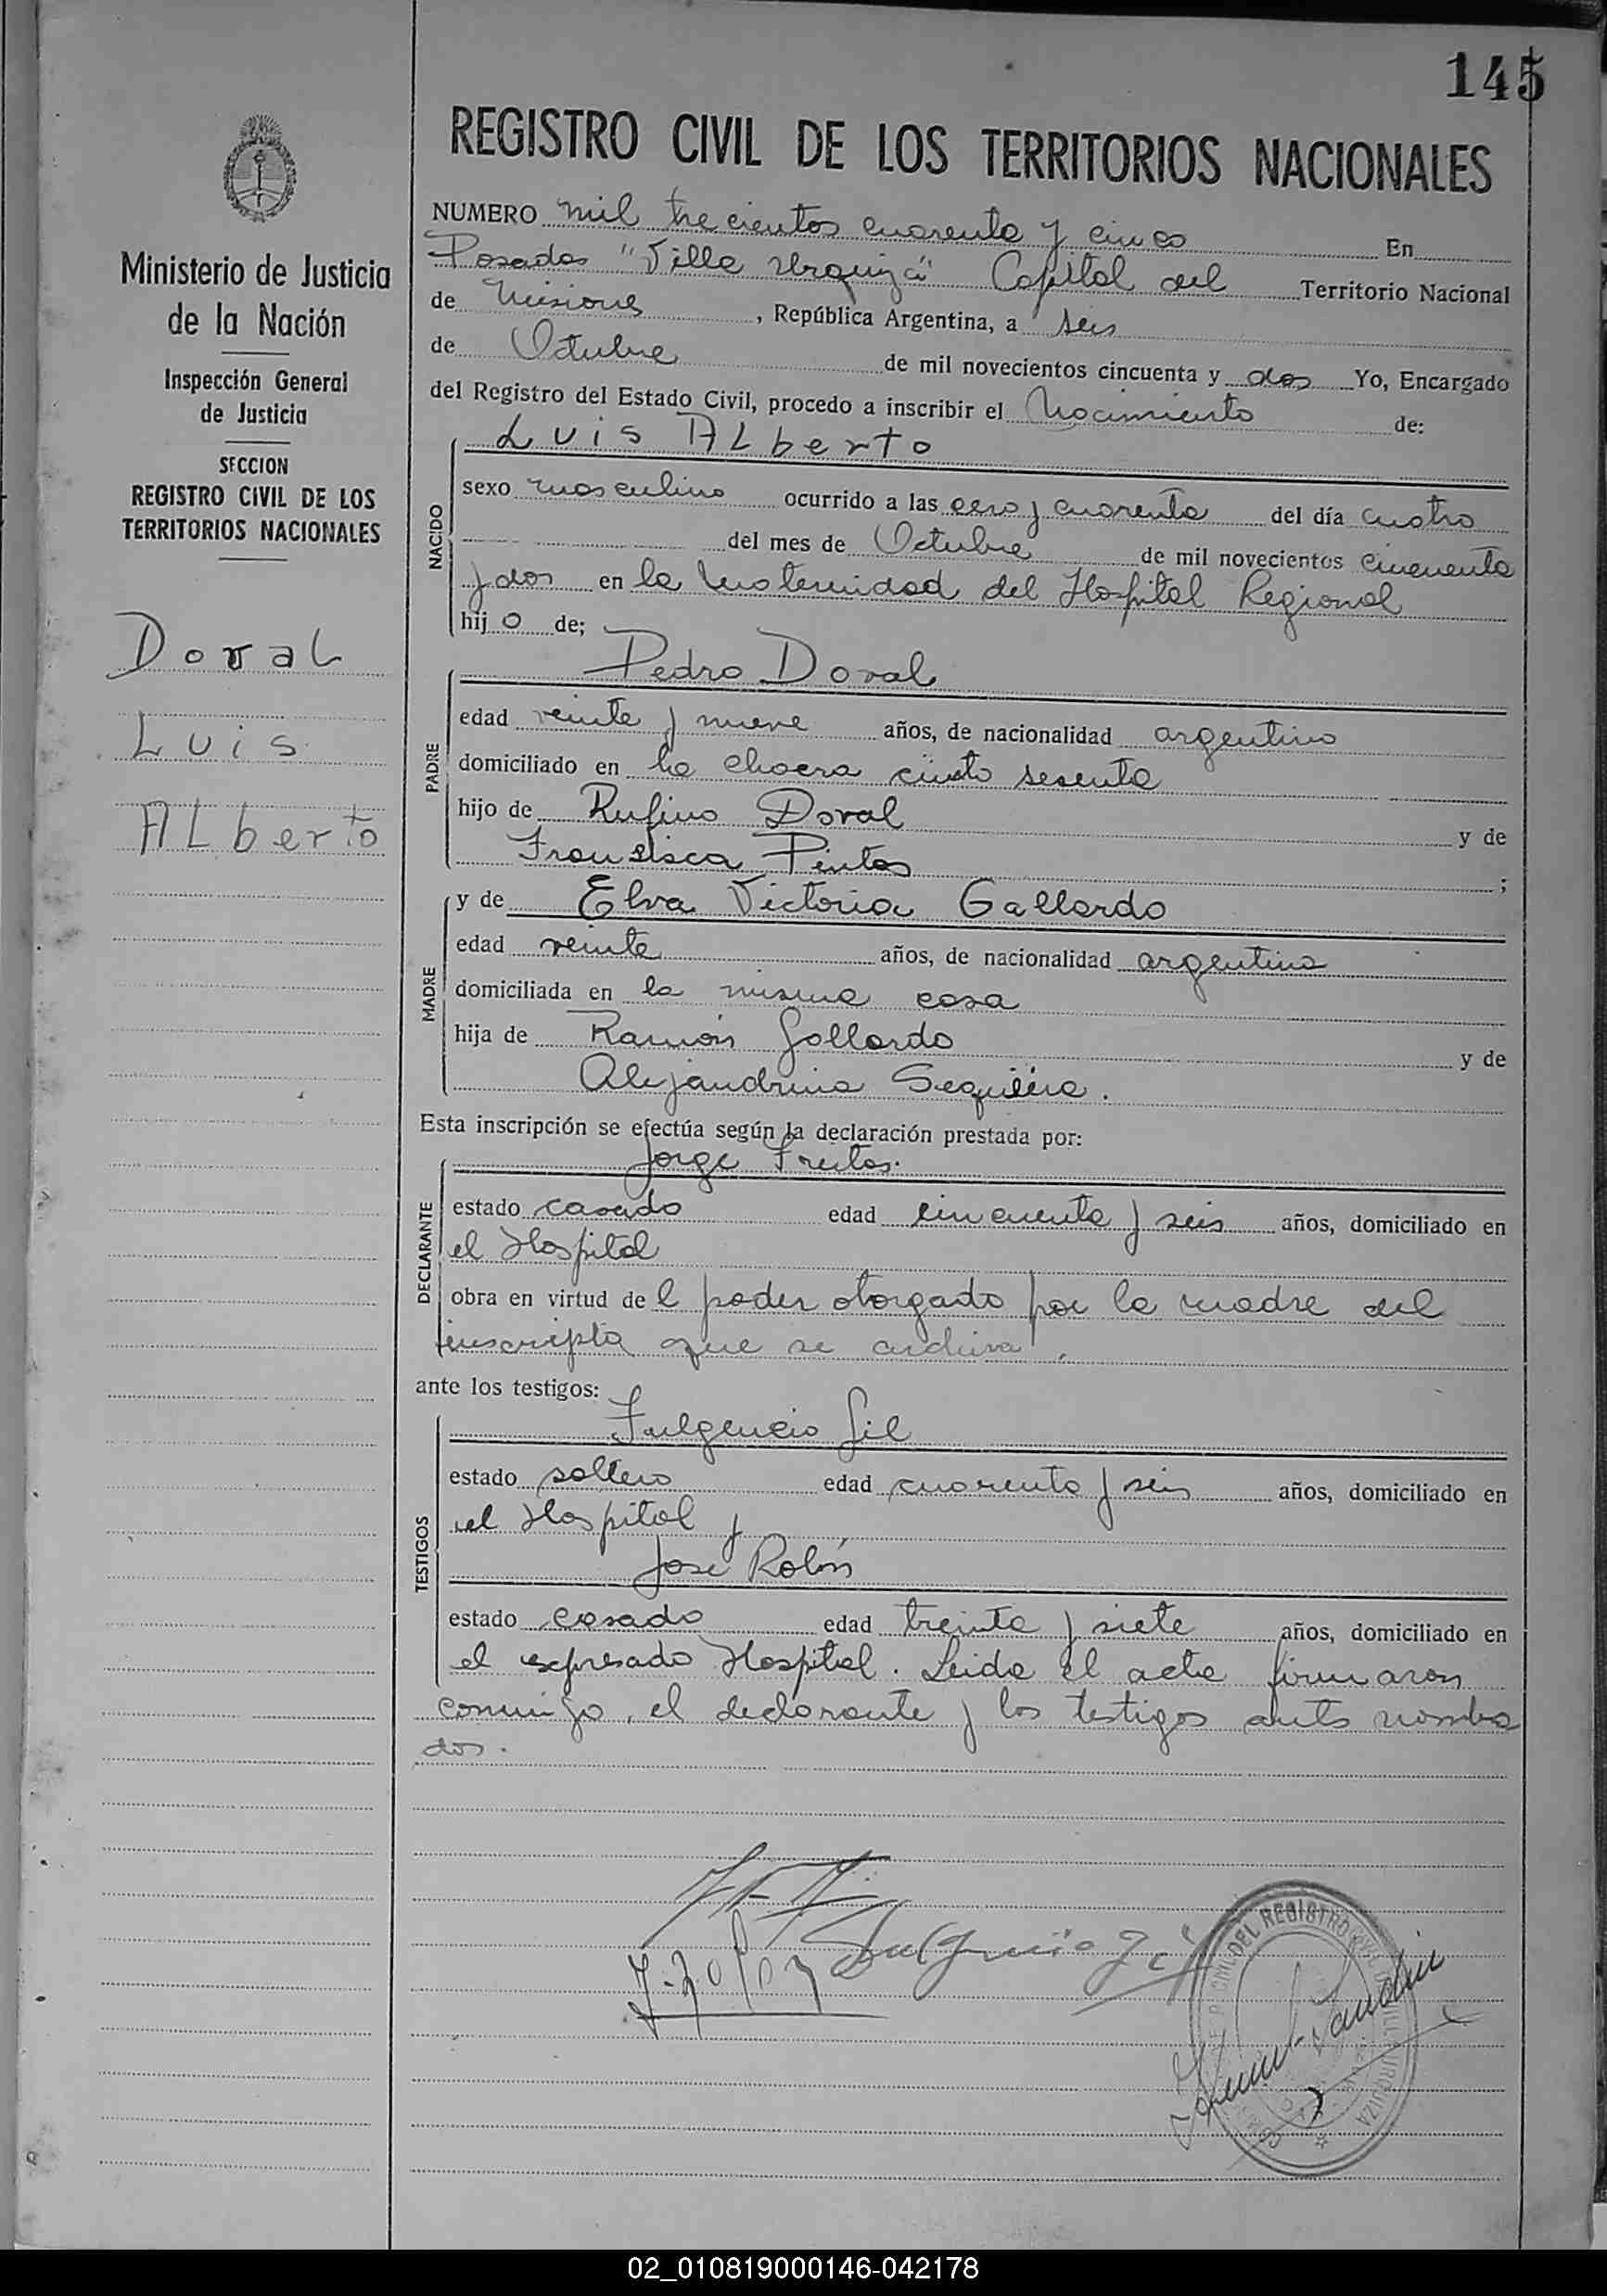 145
REGISTRO CIVIL DE LOS TERRITORIOS NACIONALES
Ministerio de Justicia
de la Nación
Inspección General
de Justicia
SECCION
REGISTRO CIVIL DE LOS
TERRITORIOS NACIONALES
Doval
Luis
Alberto
NUMERO mil trecientos cuarenta y cinco En
Posadas "Villa Urquiza" Capital del Territorio Nacional
de Misiones, República Argentina, a seis
de Octubre de mil novecientos cincuenta y dos Yo, Encargado
del Registro del Estado Civil, procedo a inscribir el Nacimiento de:
NACIDO
Luis Alberto
sexo masculino ocurrido a las cero y cuarenta del día cuatro
del mes de Octubre de mil novecientos cincuenta
y dos en la Maternidad del Hospital Regional
hijo de;
PADRE
Pedro Doval
edad veinte y nueve años, de nacionalidad argentino
domiciliado en la chacra ciento sesenta
hijo de Rufino Doval y de
Francisca Pintos ;
MADRE
y de Elva Victoria Gallardo
edad veinte años, de nacionalidad argentina
domiciliada en la misma casa
hija de Ramón Gallardo y de
Alejandrina Sequeira.
Esta inscripción se efectúa según la declaración prestada por:
DECLARANTE
Jorge Freitas.
estado casado edad cincuenta y seis años, domiciliado en
el Hospital
obra en virtud del poder otorgado por la madre del
inscripto que se archiva.
ante los testigos:
TESTIGOS
Fulgencio Gil
estado soltero edad cuarenta y seis años, domiciliado en
el Hospital y
José Rolón
estado casado edad treinta y siete años, domiciliado en
el expresado Hospital. Leida el acta firmaron
conmigo, el declarante y los testigos antes nombra
dos.
Fulgencio Gil
DEL REGISTRO
02_010819000146-042178